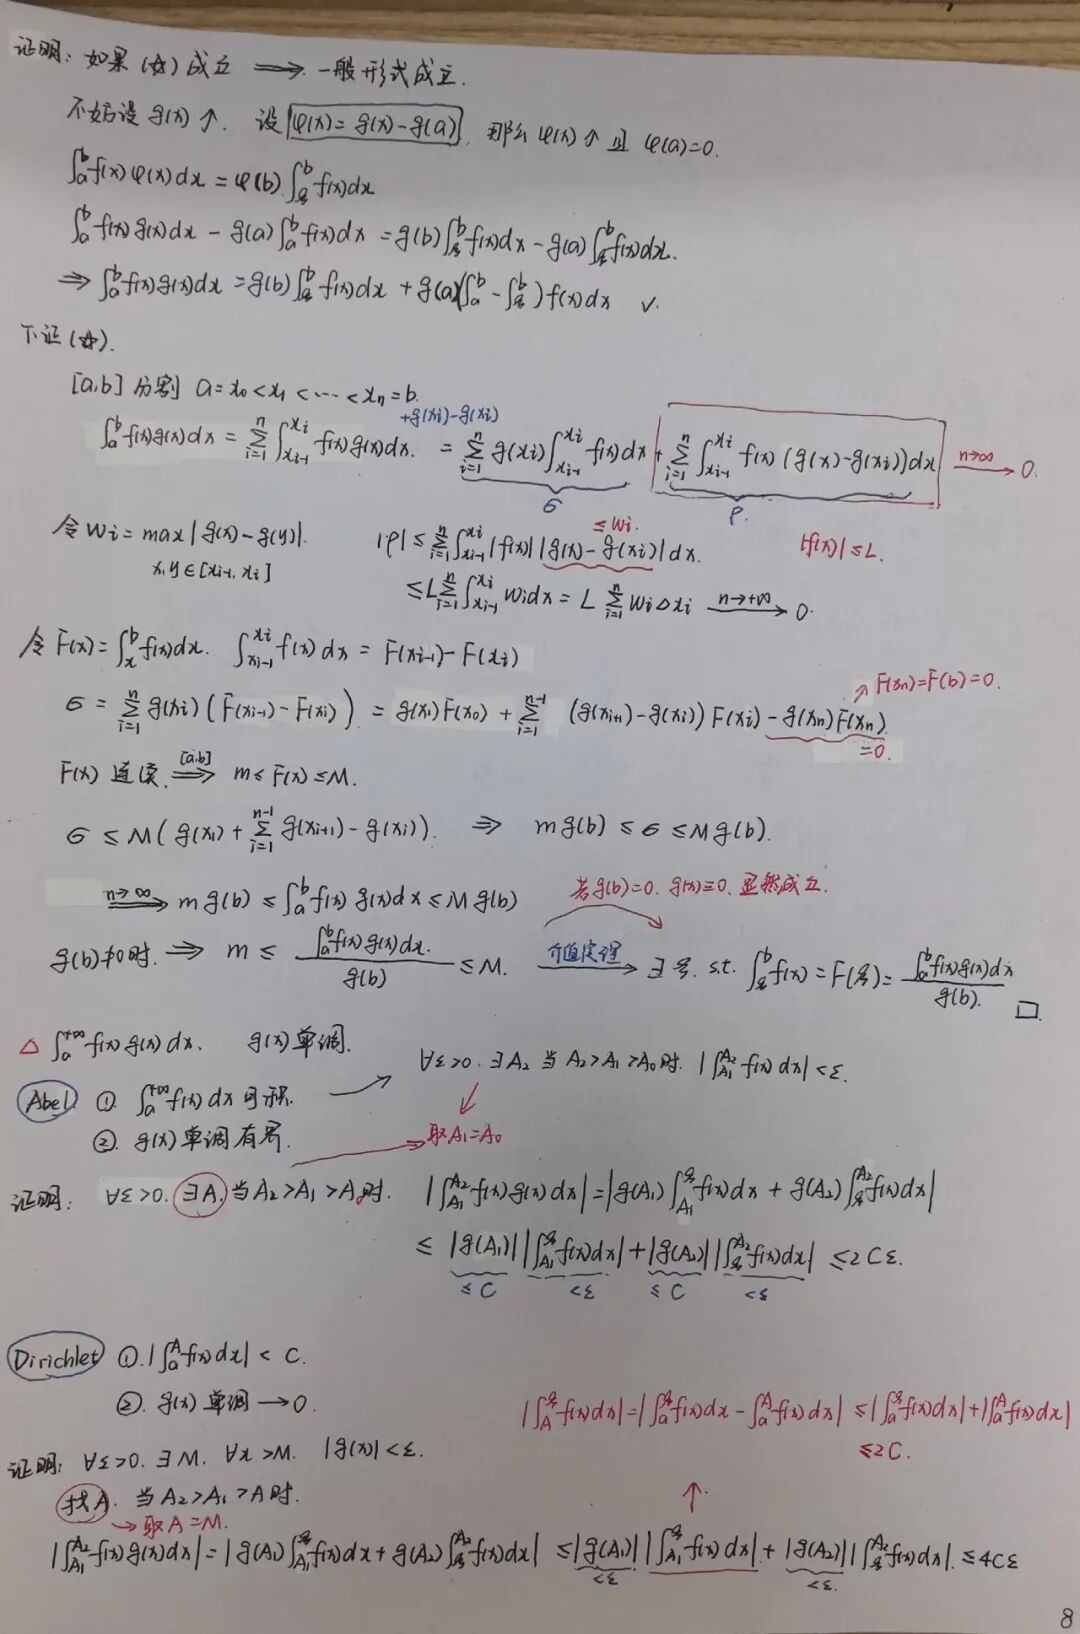 证明: 如果 (☆) 成立 ⟹ 一般形式成立.
不妨设 g(x)↑. 设 φ(x)=g(x)-g(a), 那么 φ(x)↑ 且 φ(a)=0.
∫_a^b f(x)φ(x)dx = φ(b)∫_ξ^b f(x)dx
∫_a^b f(x)g(x)dx - g(a)∫_a^b f(x)dx = g(b)∫_ξ^b f(x)dx - g(a)∫_ξ^b f(x)dx.
⇒ ∫_a^b f(x)g(x)dx = g(b)∫_ξ^b f(x)dx + g(a)(∫_a^b - ∫_ξ^b)f(x)dx ✓.
下证(☆).
[a,b] 分割 a=x₀<x₁<…<xₙ=b.
+g(xi)-g(xi)
∫_a^b f(x)g(x)dx = Σ_{i=1}^n ∫_{xi-1}^{xi} f(x)g(x)dx. = Σ_{i=1}^n g(xi)∫_{xi-1}^{xi} f(x)dx + Σ_{i=1}^n ∫_{xi-1}^{xi} f(x)(g(x)-g(xi))dx n→∞ → 0.
σ ρ
≤ wi.
令 wi = max|g(x)-g(y)|. |ρ| ≤ Σ_{i=1}^n ∫_{xi-1}^{xi} |f(x)||g(x)-g(xi)|dx. |f(x)|≤L.
x,y∈[xi-1, xi] ≤ L Σ_{i=1}^n ∫_{xi-1}^{xi} wi dx = L Σ_{i=1}^n wi Δxi n→+∞ → 0.
令 F(x)=∫_x^b f(x)dx. ∫_{xi-1}^{xi} f(x)dx = F(xi-1)-F(xi)
↗ F(xn)=F(b)=0.
σ = Σ_{i=1}^n g(xi)(F(xi-1)-F(xi)) = g(x₁)F(x₀) + Σ_{i=1}^{n-1} (g(xi+1)-g(xi))F(xi) - g(xn)F(xn)
=0.
F(x) 连续 [a,b] ⟹ m≤F(x)≤M.
σ ≤ M(g(x₁)+Σ_{i=1}^{n-1} g(xi+1)-g(xi)). ⇒ mg(b) ≤ σ ≤ Mg(b).
n→∞ ⟹ mg(b) ≤ ∫_a^b f(x)g(x)dx ≤ Mg(b) 若g(b)=0. g(x)≡0. 显然成立.
g(b)≠0时. ⇒ m ≤ ∫_a^b f(x)g(x)dx. / g(b) ≤ M. 介值定理 → ∃ξ. s.t. ∫_ξ^b f(x) = F(ξ) = ∫_a^b f(x)g(x)dx / g(b). □.
△ ∫_a^{+∞} f(x)g(x)dx. g(x)单调.
∀ε>0. ∃A₂ 当A₂>A₁>A₀时. |∫_{A₁}^{A₂} f(x)dx|<ε.
Abel ①. ∫_a^{+∞} f(x)dx可积. →
②. g(x)单调有界.
取A₁=A₀
证明: ∀ε>0. ∃A. 当A₂>A₁>A₀时. |∫_{A₁}^{A₂} f(x)g(x)dx| = |g(A₁)∫_{A₁}^ξ f(x)dx + g(A₂)∫_ξ^{A₂} f(x)dx|
≤ |g(A₁)||∫_{A₁}^ξ f(x)dx| + |g(A₂)||∫_ξ^{A₂} f(x)dx| ≤ 2Cε.
≤C <ε ≤C <ε
Dirichlet ①. |∫_a^A f(x)dx| < C.
②. g(x)单调→0.
|∫_A^ξ f(x)dx| = |∫_a^ξ f(x)dx - ∫_a^A f(x)dx| ≤ |∫_a^ξ f(x)dx| + |∫_a^A f(x)dx|
≤2C.
证明: ∀ε>0. ∃M. ∀x>M. |g(x)|<ε.
找A. 当A₂>A₁>A时. ↑
→ 取A=M.
|∫_{A₁}^{A₂} f(x)g(x)dx| = |g(A₁)∫_{A₁}^ξ f(x)dx + g(A₂)∫_ξ^{A₂} f(x)dx| ≤ |g(A₁)||∫_{A₁}^ξ f(x)dx| + |g(A₂)||∫_ξ^{A₂} f(x)dx|. ≤4Cε
<ε. <ε.
8